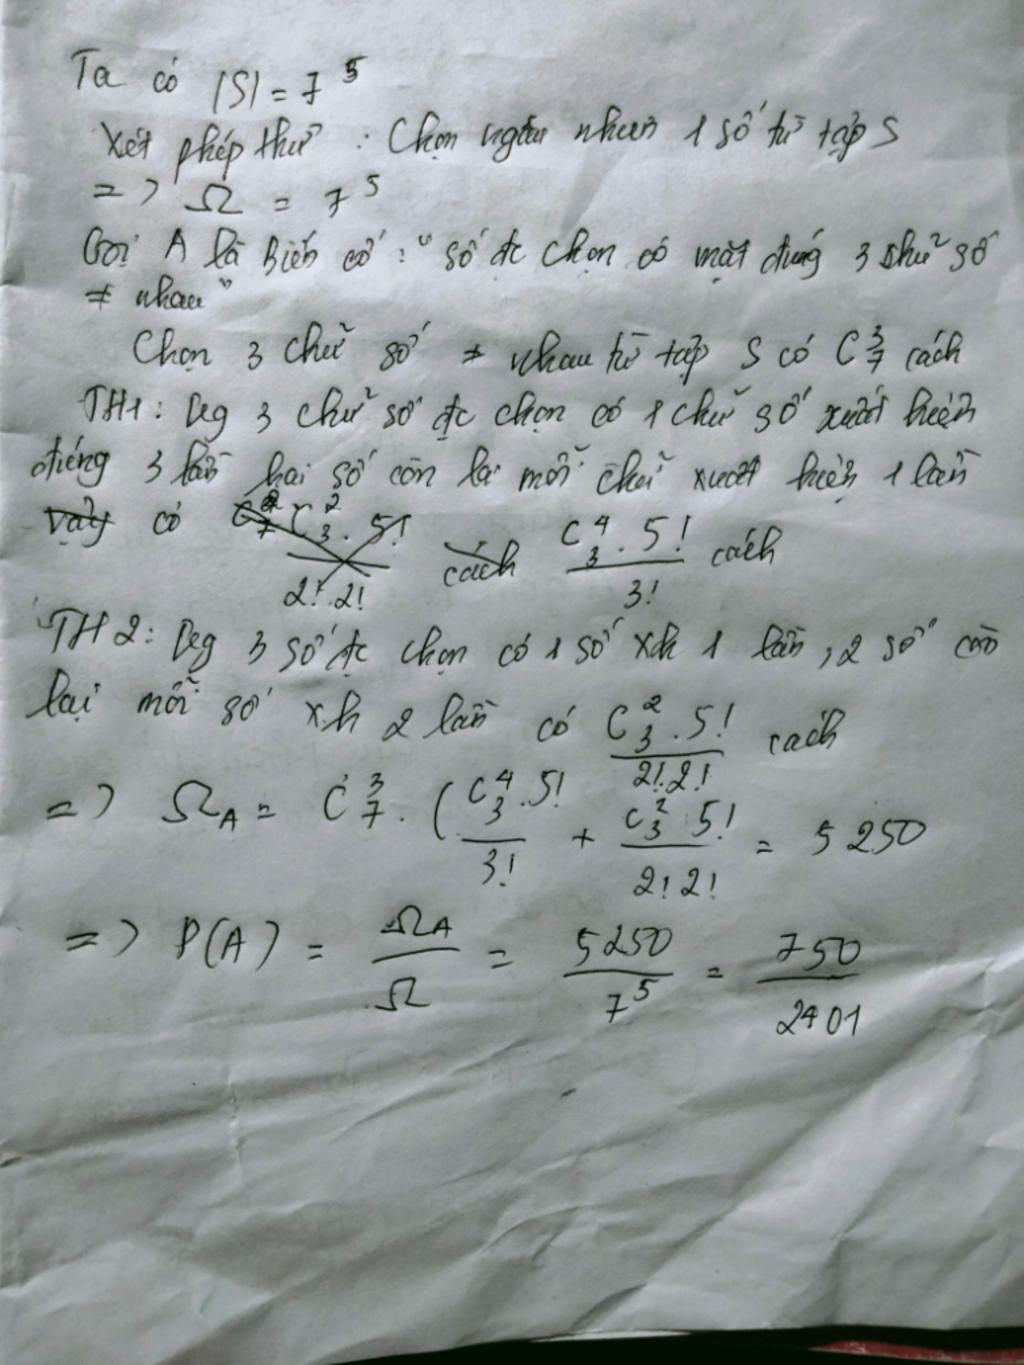 Ta có |S| = 7^5
Xét phép thử : Chọn ngẫu nhiên 1 số từ tập S
=> Ω = 7^5
Gọi A là Biến cố : "số đc chọn có mặt đúng 3 chữ số
≠ nhau"
Chọn 3 chữ số ≠ nhau từ tập S có C^3_7 cách
TH1: Trg 3 chữ số đc chọn có 1 chữ số xuất hiện
đúng 3 lần hai số còn lại mỗi chữ xuất hiện 1 lần
vậy có C^2_3 . 5! / 2! 2! cách C^4_3 . 5! / 3! cách
TH2: Trg 3 số đc chọn có 1 số xh 1 lần, 2 số còn
lại mỗi số x.h 2 lần có C^2_3 . 5! / 2! 2! cách
=> Ω_A = C^3_7 . ( C^4_3 . 5! / 3! + C^2_3 5! / 2! 2! = 5250
=> P(A) = Ω_A / Ω = 5250 / 7^5 = 750 / 2401